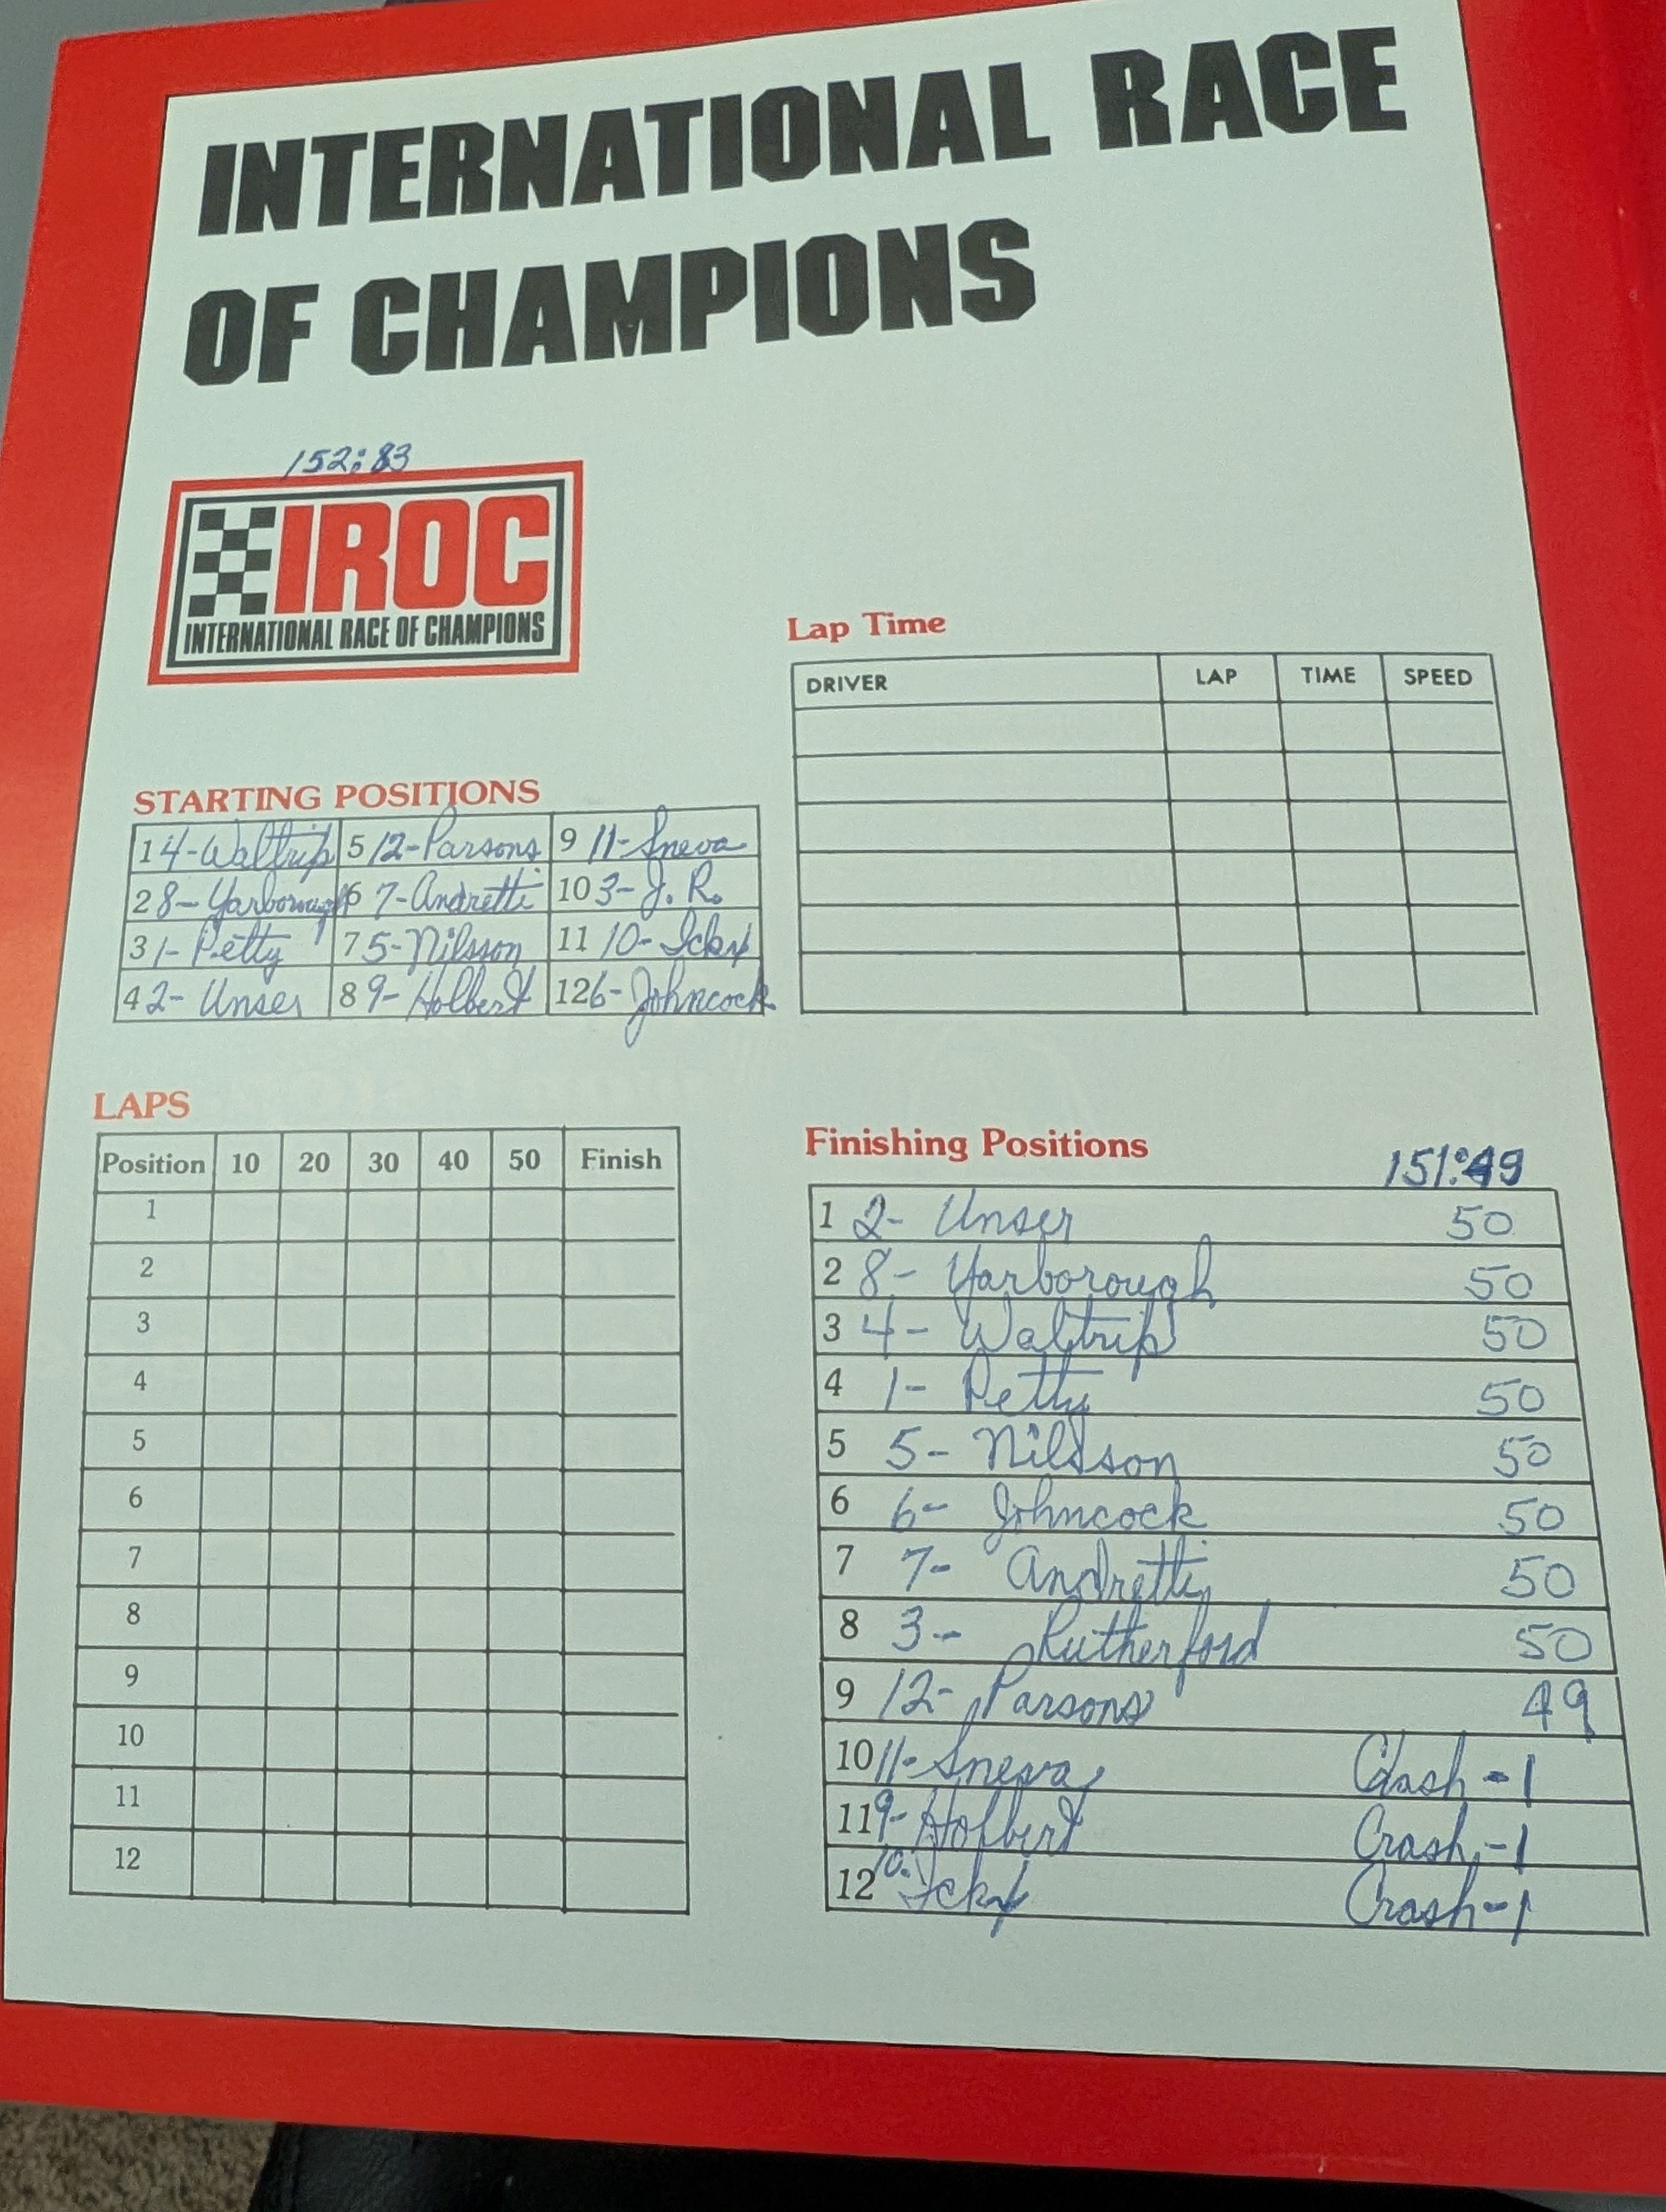 INTERNATIONAL RACE
OF CHAMPIONS
152:83
IROC
INTERNATIONAL RACE OF CHAMPIONS
STARTING POSITIONS
1 4-Waltrip 5 12-Parsons 9 11-Sneva
2 8-Yarborough 6 7-Andretti 10 3-J.R.
3 1-Petty 7 5-Nilsson 11 10-Ickx
4 2-Unser 8 9-Holbert 12 6-Johncock
Lap Time
DRIVER LAP TIME SPEED
LAPS
Position 10 20 30 40 50 Finish
1
2
3
4
5
6
7
8
9
10
11
12
Finishing Positions 151:49
1 2- Unser 50
2 8- Yarborough 50
3 4- Waltrip 50
4 1- Petty 50
5 5- Nilsson 50
6 6- Johncock 50
7 7- Andretti 50
8 3- Rutherford 50
9 12- Parsons 49
10 11- Sneva Crash-1
11 9- Holbert Crash-1
12 10- Ickx Crash-1